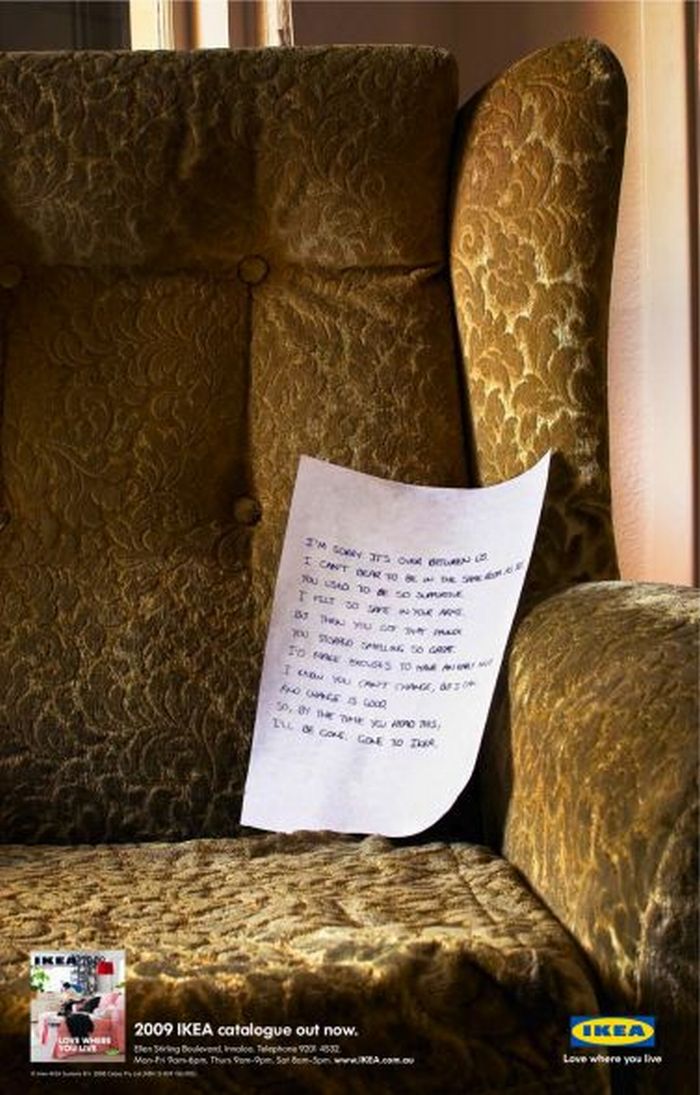 I'M SORRY IT'S OVER BETWEEN US.
I CAN'T BEAR TO BE IN THE SAME ROOM AS
YOU USED TO BE SO SUPPORTIVE.
I FELT SO SAFE IN YOUR ARMS.
BUT THEN YOU GOT THAT
YOU STOPPED SMELLING SO GREAT.
I'D MAKE EXCUSES TO HAVE AN EARLY
I KNOW YOU CAN'T CHANGE, BUT I CAN.
AND CHANGE IS GOOD.
SO, BY THE TIME YOU READ THIS,
I'LL BE GONE. GONE TO IKEA.
IKEA
LOVE WHERE
YOU LIVE
2009 IKEA catalogue out now.
Ellen Stirling Boulevard, Innaloo. Telephone 9201 4532.
Mon-Fri 9am-6pm, Thurs 9am-9pm, Sat 8am-5pm. www.IKEA.com.au
IKEA
Love where you live